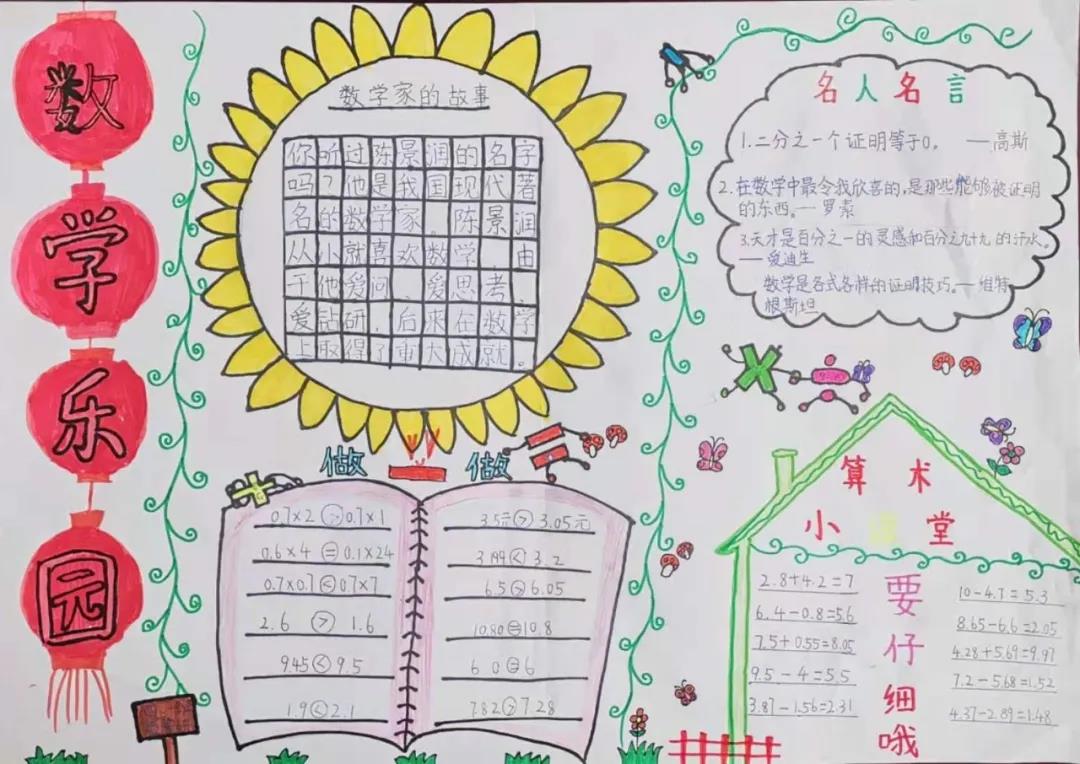 数
学
乐
园
数学家的故事
你听过陈景润的名字
吗？他是我国现代著
名的数学家。陈景润
从小就喜欢数学 由
于他爱问、爱思考、
爱钻研，后来在数学
上取得了重大成就。
名人名言
1.二分之一个证明等于0。 ——高斯
2.在数学中最令我欣喜的,是那些能够被证明
的东西。—罗素
3.天才是百分之一的灵感和百分之九十九的汗水。
—爱迪生
数学是各式各样的证明技巧。—维特
根斯坦
做一做
0.7×2 > 0.7×1
0.6×4 = 0.1×24
0.7×0.7 < 0.7×7
2.6 > 1.6
9.45 < 9.5
1.9 < 2.1
3.5元 > 3.05元
3.199 < 3.2
6.5 > 6.05
10.80 = 10.8
6.0 = 6
7.82 > 7.28
算术
小课堂
2.8+4.2=7
6.4-0.8=5.6
7.5+0.55=8.05
9.5-4=5.5
3.87-1.56=2.31
要
仔
细
哦
10-4.7=5.3
8.65-6.6=2.05
4.28+5.69=9.97
7.2-5.68=1.52
4.37-2.89=1.48